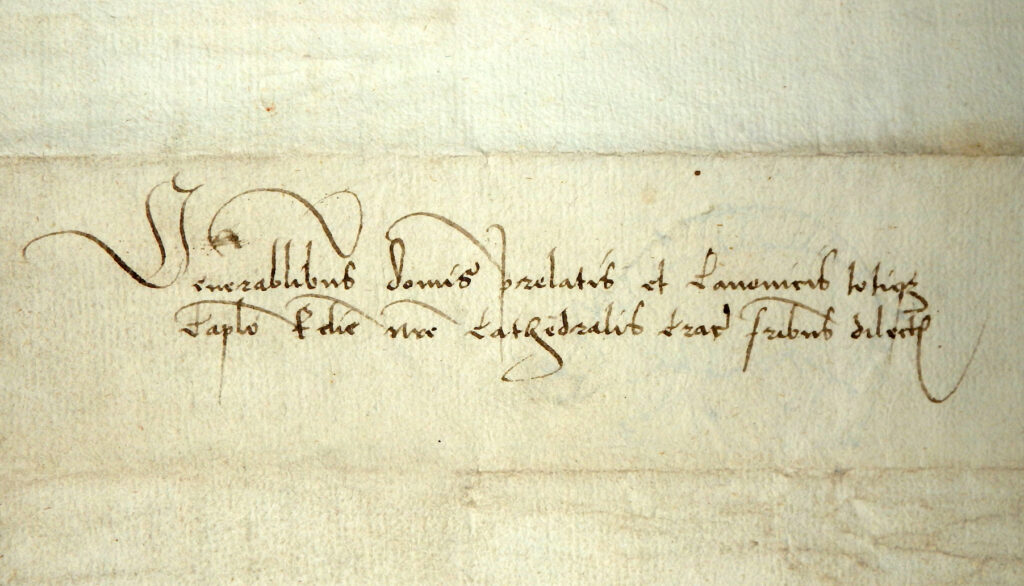 Venerabilibus domis prelatis et Canonicis totiqz
Caplo Ecclie nre Cathedralis Crac fribus dilectis